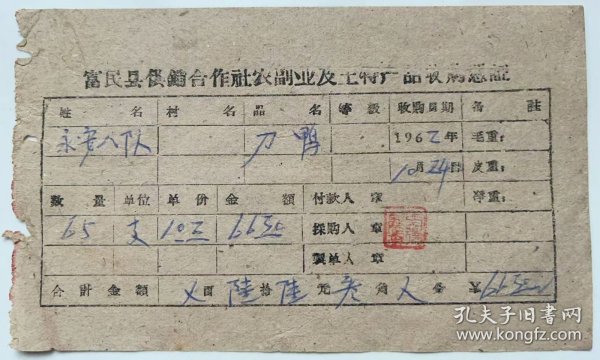 富民县供銷合作社农副业及土特产品收购憑証
姓 名 村 名 品 名 等 級 收购日期 备 註
永安八队 刀 鸭 1962年 毛重:
10月24日 皮重:
数 量 单位 单 价 金 額 付款人 章 净重:
65 支 66 採购人 章
製单人 章
合 計 金 額 ㄨ 百 陆 拾 陆 元 叁 角 分 ¥66
孔夫子旧书网
www.kongfz.com